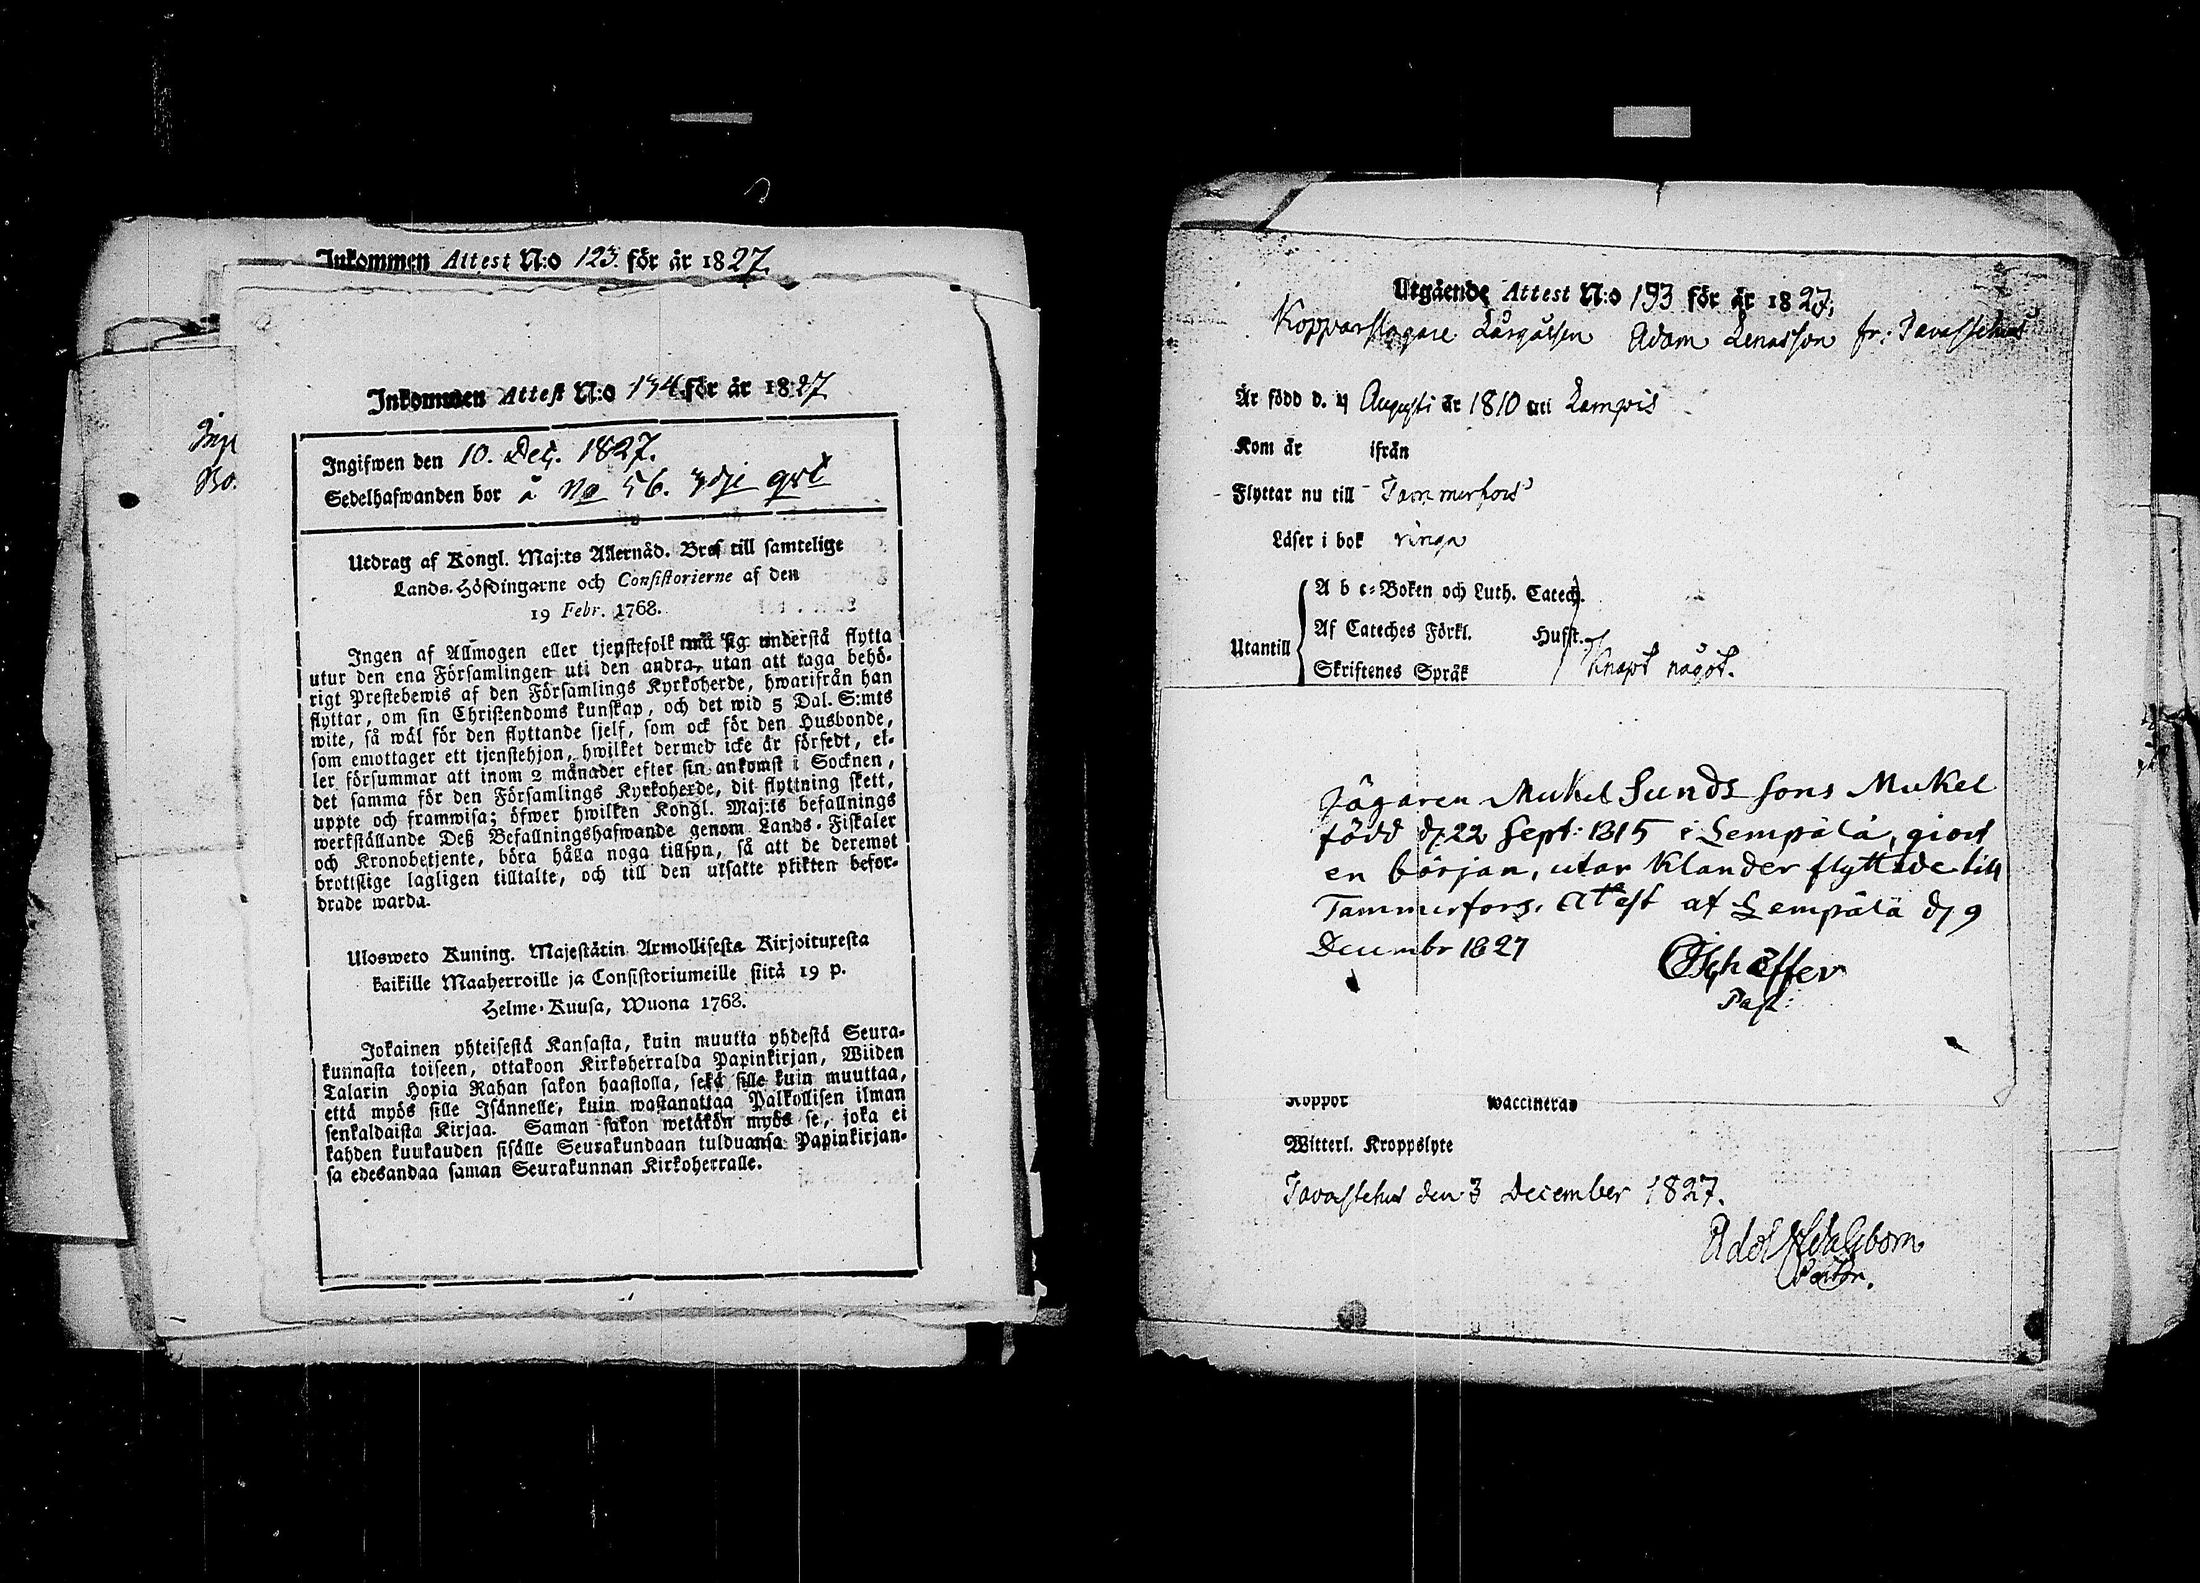 Inkommen Attest N:o 123. för är 1827.
Inkommen Attest N:o 134 för är 1827
Ingifwen den 10. Dec. 1827.
Sedelhafwanden bor å No 56. 3dje qvt
Utdrag af Kongl. Maj:ts Allernåd. Bref till samtelige
Lands-Höfdingarne och Consistorierne af den
19 Febr. 1768.
Ingen af Allmogen eller tjenstefolk må sig understå flytta
utur den ena Församlingen uti den andra, utan att taga behö-
rigt Prestebewis af den Församlings Kyrkoherde, hwarifrån han
flyttar, om sin Christendoms kunskap, och det wid 5 Dal. S:mts
wite, så wäl för den flyttande sjelf, som ock för den Husbonde,
som emottager ett tjenstehjon, hwilket dermed icke är försedt, el-
ler försummar att inom 2 månader efter sin ankomst i Socknen,
det samma för den Församlings Kyrkoherde, dit flyttning skett,
uppte och framwisa; öfwer hwilken Kongl. Maj:ts befallnings
werkställande Deß Befallningshafwande genom Lands-Fiskaler
och Kronobetjente, böra hålla noga tillsyn, så att de deremot
brottslige lagligen tilltalte, och till den utsatte plikten befor-
drade warda.
Ulosweto Kuning. Majestätin Armollisesta Kirjoituxesta
kaikille Maaherroille ja Consistoriumeille siitä 19 p.
Helme-Kuusa, Wuona 1768.
Jokainen yhteisestä Kansasta, kuin muutta yhdestä Seura-
kunnasta toiseen, ottakoon Kirkoherralda Papinkirjan, Wiiden
Talarin Hopia Rahan sakon haastolla, sekä sille kuin muuttaa,
että myös sille Isännelle, kuin wastanottaa Palkollisen ilman
senkaldaista Kirjaa. Saman sakon wetäkön myös se, joka ei
kahden kuukauden sisälle Seurakundaan tulduansa Papinkirjan-
sa edesandaa saman Seurakunnan Kirkoherralle.
Utgående Attest N:o 193 för är 1827.
Kopparslagare Lärgåssen Adam Lenasson fr: Tavastehus
Är född d. 4 Augusti är 1810 uti Lampis
Kom är ifrån
Flyttar nu till Tammerfors
Läser i bok ringa
A b c-Boken och Luth. Catech.
Af Cateches Förkl. Hufst.
Utantill
Skriftenes Språk Knapt något.
Jägaren Mickel Sunds sons Mickel
född d. 22 Sept: 1815 i Lempälä, giort
en början, utan Klander flyttade till
Tammerfors. Attest af Lempälä d. 9
December 1827
Schæffer
Past:
Koppor waccinerad
Witterl. Kroppslyte
Tavastehus den 3 December 1827.